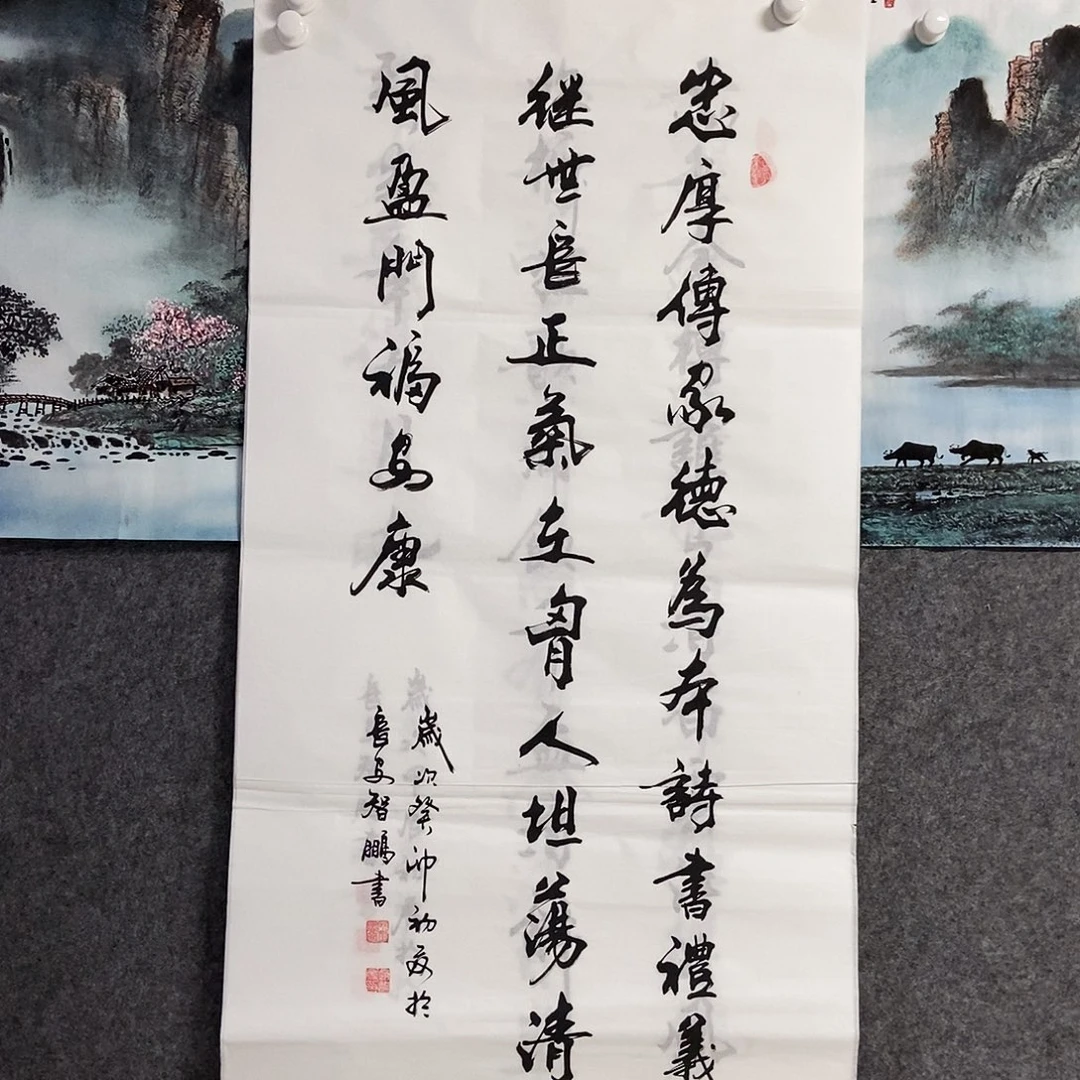 忠厚傳家德為本詩書禮義
继世長正氣在胷人坦蕩清
風盈門福安康
歲次癸卯初夏於
長安智鵬書